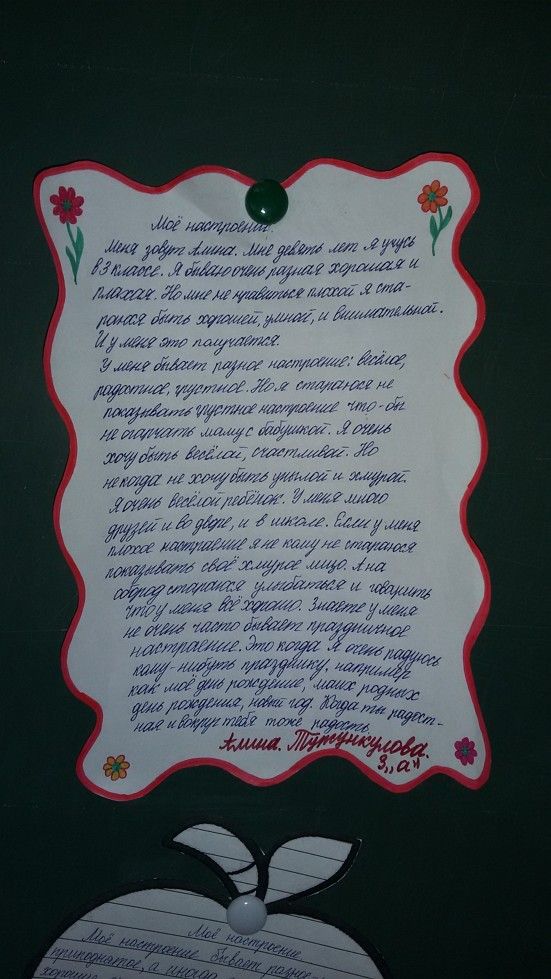 Моё настроение.
Меня зовут Алина. Мне девять лет я учусь
в 3 классе. Я бываю очень разная хорошая и
плахая. Но мне не нравиться плохой я ста-
раюся быть хорошей, умной, и внимательной.
И у меня это получается.
У меня бывает разное настроение: весёлое,
радастное, грустное. Но я стараюся не
показывать грустное настроение что-бы
не агарчать маму с бабушкой. Я очень
хочу быть весёлой, счастливай. Но
не когда не хочу быть унылой и хмурой.
Я очень весёлой ребёнок. У меня много
друзей и во дворе, и в школе. Если у меня
плохое настраение я не каму не стараюся
показывать своё хмурое лицо. А на
обарод стараюся улыбаться и говорить
что у меня всё хорошо. Знаете у меня
не очень часто бывает праздничное
настраение. Это когда я очень радуюсь
каму-нибуть празднику, например
как моё день рождение, маих родных
день рождения, новый год. Когда ты радаст-
ная и вокруг тебя тоже радость.
Алина. Турсункулова.
3 „а"
Моё настроение
Моё настроение бывает разное
приподнятое, а иногда